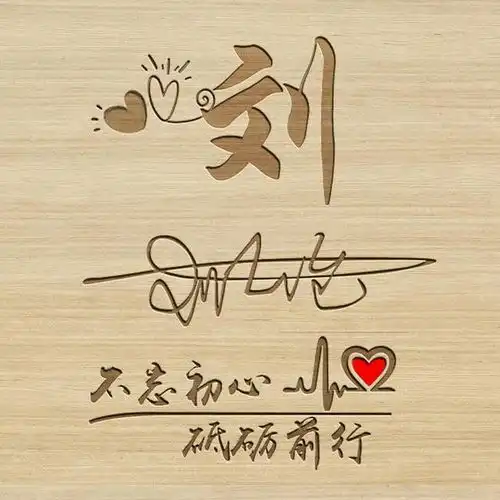 刘
不忘初心
砥砺前行